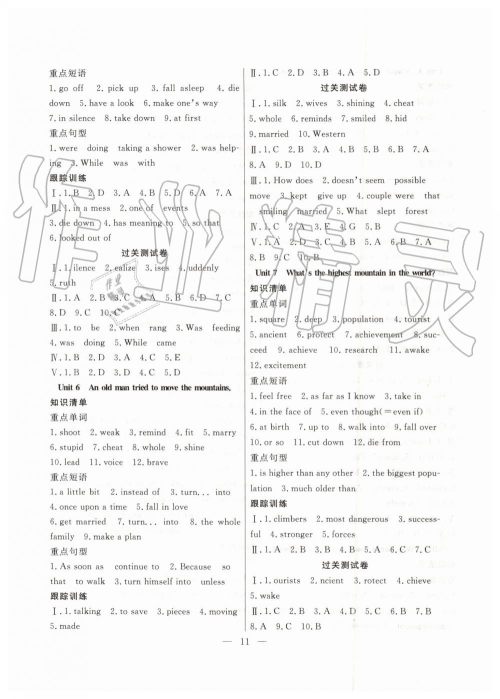 重点短语
1. go off 2. pick up 3. fall asleep 4. die
down 5. have a look 6. make one's way
7. in silence 8. take down 9. at first
重点句型
1. were doing taking a shower 2. was help-
ing 3. While was with
跟踪训练
Ⅰ. 1. B 2. D 3. A 4. B 5. D 6. A 7. A
Ⅱ. 1. in a mess 2. one of events
3. die down 4. has meaning to 5. so that
6. looked out of
过关测试卷
Ⅰ. 1. ilence 2. ealize 3. ises 4. uddenly
5. ruth
Ⅱ. 1. A 2. B 3. C 4. A 5. B 6. D 7. C
8. D 9. C 10.
Ⅲ. 1. to be 2. when rang 3. Was feeding
4. was doing 5. While came
Ⅳ. 1. B 2. D 3. A 4. C 5. E
Unit 6 An old man tried to move the mountains.
知识清单
重点单词
1. shoot 2. weak 3. remind 4. fit 5. marry
6. stupid 7. cheat 8. whole 9. shine
10. lead 11. voice 12. brave
重点短语
1. a little bit 2. instead of 3. turn... into
4. once upon a time 5. fall in love
6. get married 7. turn... into 8. the whole
family 9. make a plan
重点句型
1. As soon as continue to 2. Because so
that to walk 3. turn himself into unless
跟踪训练
Ⅰ. 1. talking 2. to save 3. pieces 4. moving
5. made
Ⅱ. 1. C 2. D 3. B 4. A 5. D
过关测试卷
Ⅰ. 1. silk 2. wives 3. shining 4. cheat
5. whole 6. reminds 7. smiled 8. hid
9. married 10. Western
Ⅱ. 1. C 2. B 3. D 4. B 5. A 6. D 7. B
8. A 9. D 10. D
Ⅲ. 1. What about 2. doesn't seem possible
move 3. kept give up 4. couple were that
smiling married 5. What slept forest
Ⅳ. 1. C 2. A 3. E 4. G 5. B
Ⅴ. 1. D 2. D 3. C 4. A 5. B
Unit 7 What's the highest mountain in the world?
知识清单
重点单词
1. square 2. deep 3. population 4. tourist
5. ancient 6. protect 7. achievement 8. suc-
ceed 9. achieve 10. research 11. awake
12. excitement
重点短语
1. feel free 2. as far as I know 3. take in
4. in the face of 5. even though(=even if)
6. at birth 7. up to 8. walk into 9. fall over
10. or so 11. cut down 12. die from
重点句型
1. is higher than any other 2. the biggest popu-
lation 3. much older than
跟踪训练
Ⅰ. 1. climbers 2. most dangerous 3. success-
ful 4. stronger 5. forces
Ⅱ. 1. D 2. C 3. D 4. B 5. A 6. C 7. C
过关测试卷
Ⅰ. 1. ourists 2. ncient 3. rotect 4. chieve
5. wake
Ⅱ. 1. D 2. B 3. C 4. D 5. A 6. B 7. B
8. A 9. C 10. B
— 11 —
作业精灵